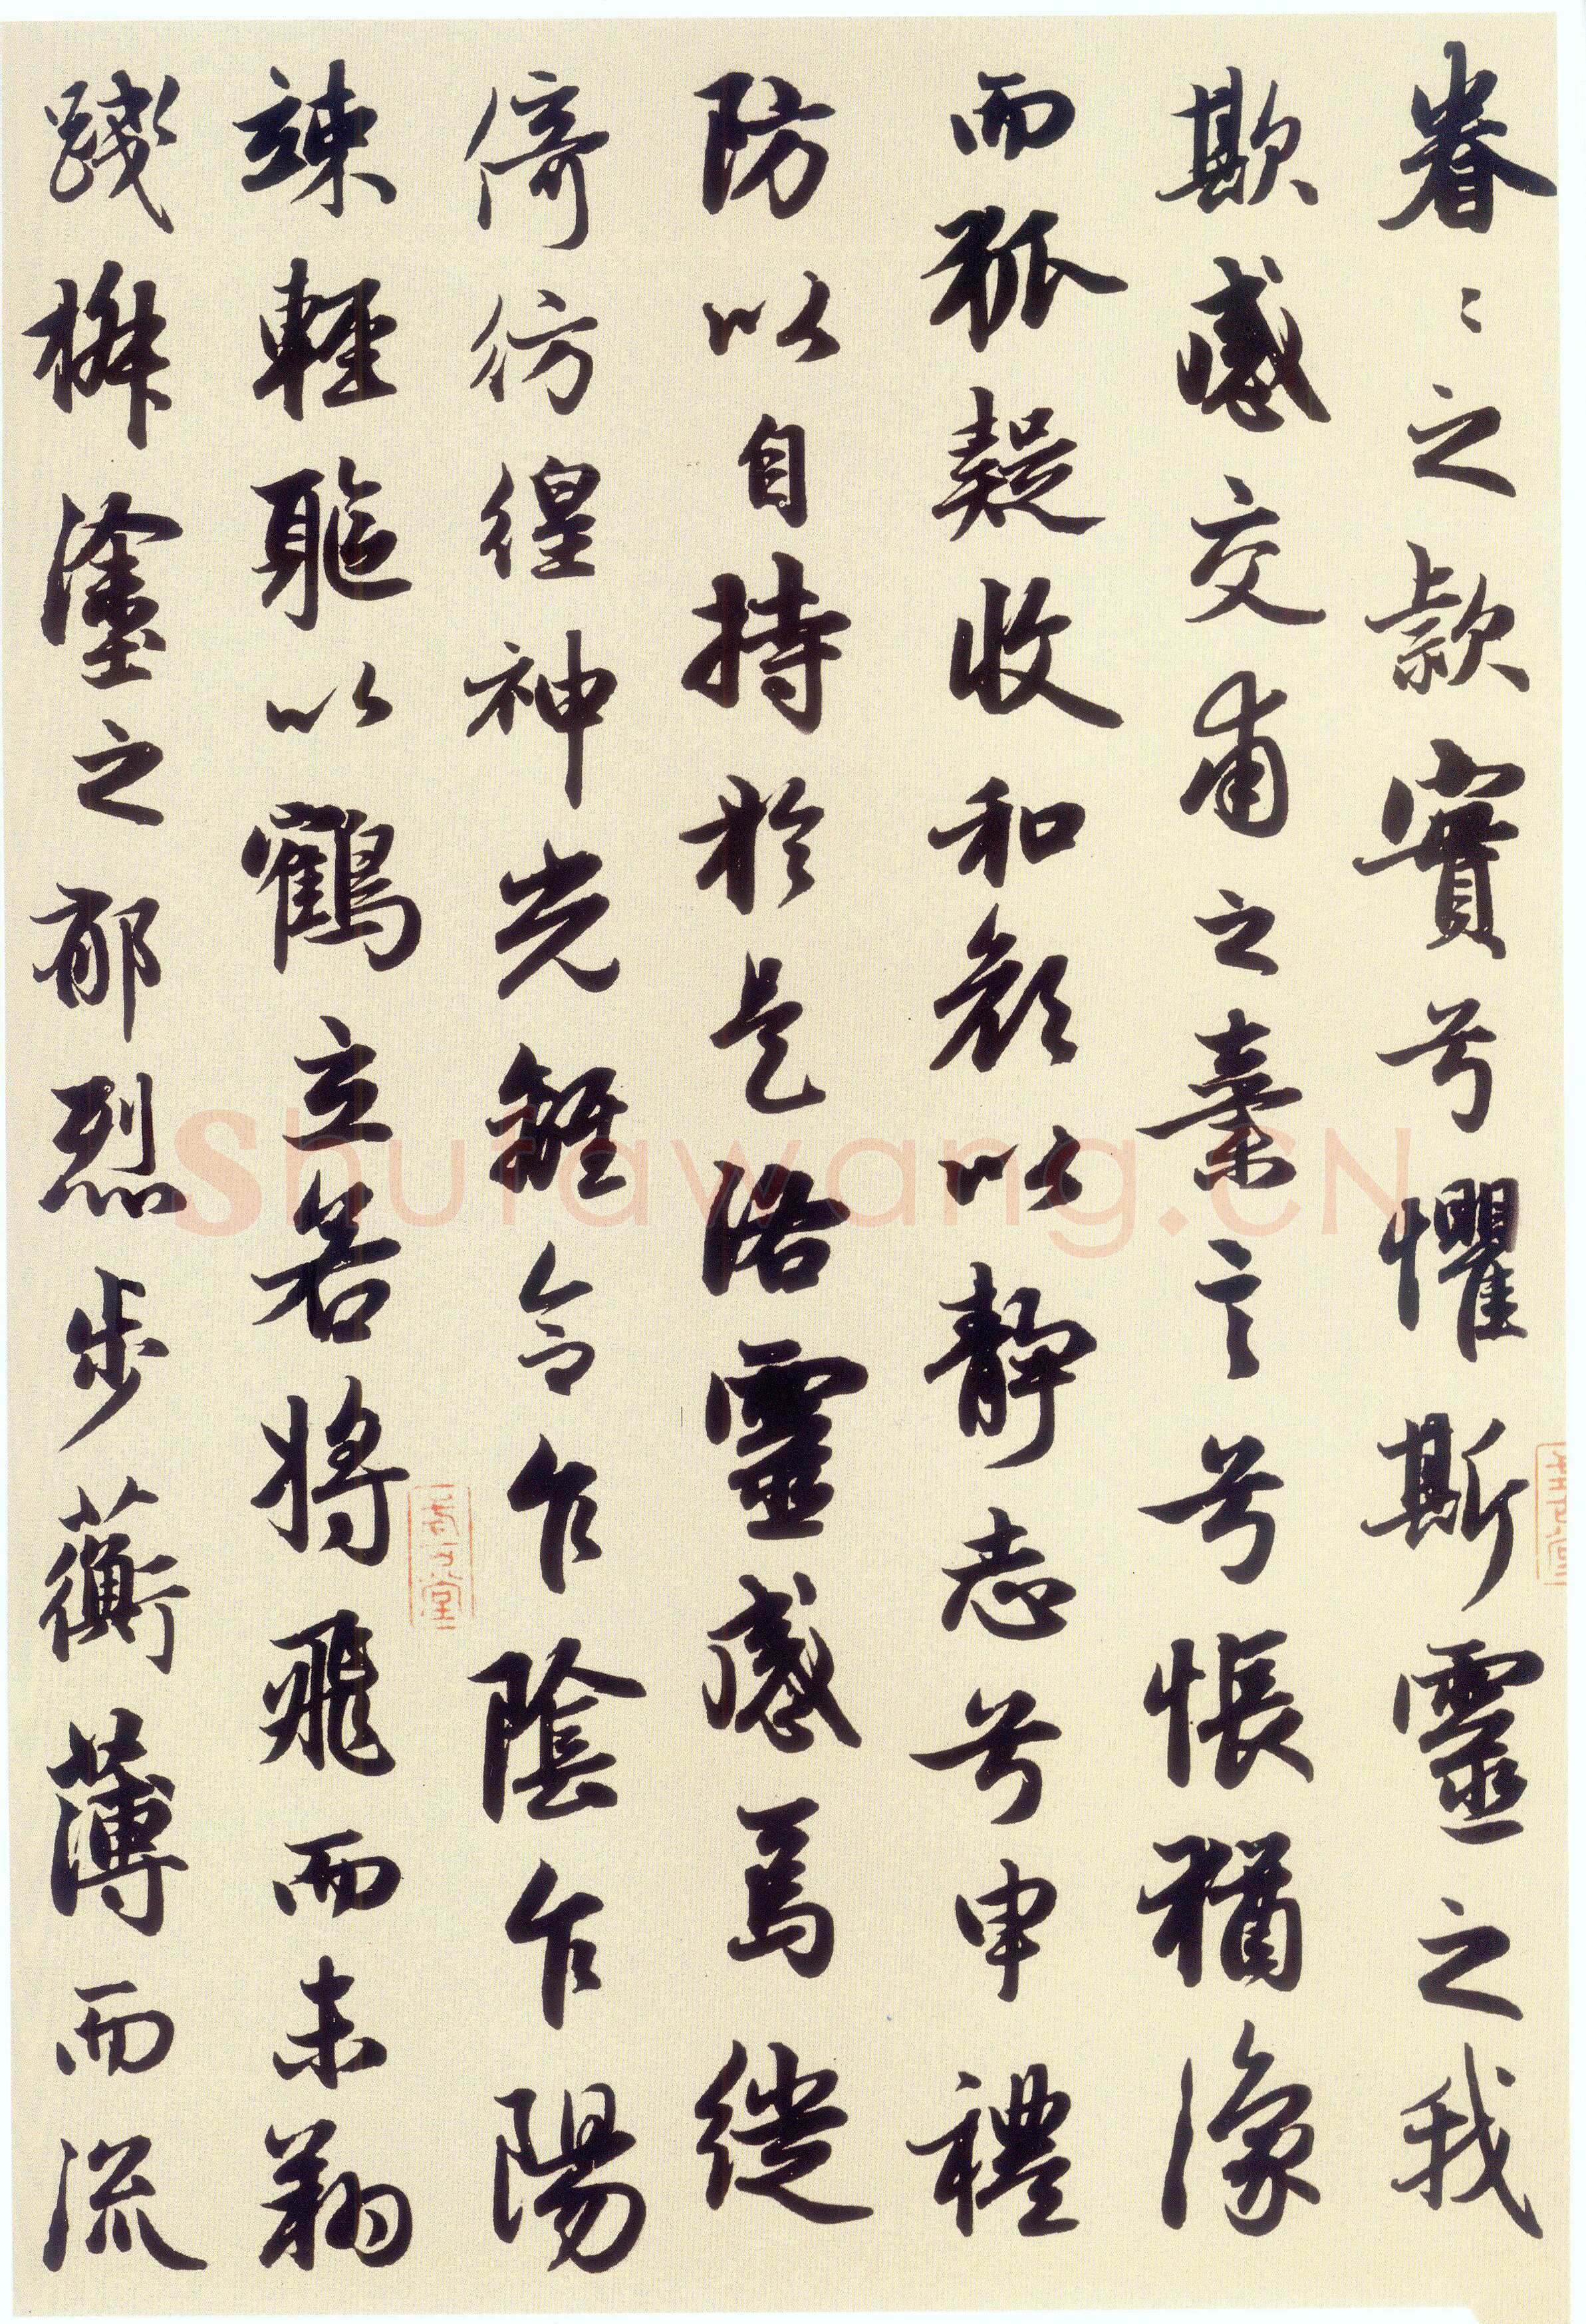 眷〻之款實兮懼斯靈之我
欺感交甫之棄言兮悵猶豫
而狐疑收和顏以靜志兮申禮
防以自持於是洛靈感焉徙
倚彷徨神光離合乍陰乍陽
竦輕軀以鶴立若將飛而未翔
踐椒塗之郁烈步蘅薄而流
shufawang.CN